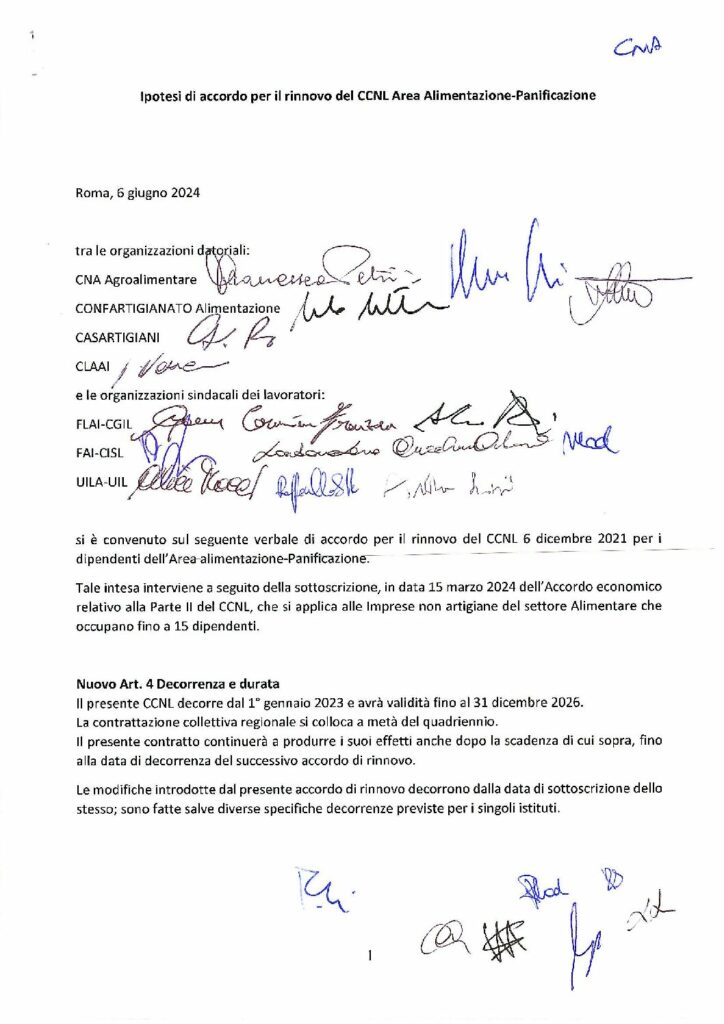 CNA
Ipotesi di accordo per il rinnovo del CCNL Area Alimentazione-Panificazione
Roma, 6 giugno 2024
tra le organizzazioni datoriali:
CNA Agroalimentare
CONFARTIGIANATO Alimentazione
CASARTIGIANI
CLAAI
e le organizzazioni sindacali dei lavoratori:
FLAI-CGIL
FAI-CISL
UILA-UIL
si è convenuto sul seguente verbale di accordo per il rinnovo del CCNL 6 dicembre 2021 per i
dipendenti dell'Area alimentazione-Panificazione.
Tale intesa interviene a seguito della sottoscrizione, in data 15 marzo 2024 dell'Accordo economico
relativo alla Parte II del CCNL, che si applica alle Imprese non artigiane del settore Alimentare che
occupano fino a 15 dipendenti.
Nuovo Art. 4 Decorrenza e durata
Il presente CCNL decorre dal 1° gennaio 2023 e avrà validità fino al 31 dicembre 2026.
La contrattazione collettiva regionale si colloca a metà del quadriennio.
Il presente contratto continuerà a produrre i suoi effetti anche dopo la scadenza di cui sopra, fino
alla data di decorrenza del successivo accordo di rinnovo.
Le modifiche introdotte dal presente accordo di rinnovo decorrono dalla data di sottoscrizione dello
stesso; sono fatte salve diverse specifiche decorrenze previste per i singoli istituti.
1